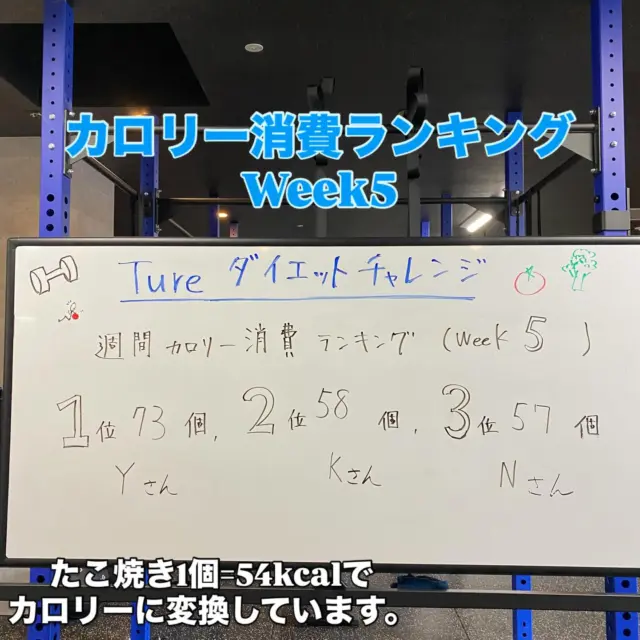 カロリー消費ランキング
Week5
Ture ダイエットチャレンジ
週間 カロリー消費 ランキング (Week 5 )
1位 73 個, 2位 58 個, 3位 57 個
Yさん Kさん Nさん
たこ焼き1個=54kcalで
カロリーに変換しています。